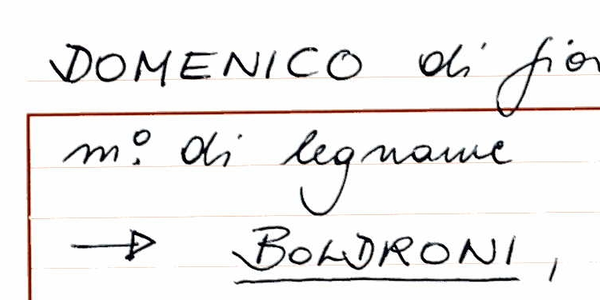 DOMENICO di gior
m.º di legname
→ BOLDRONI,